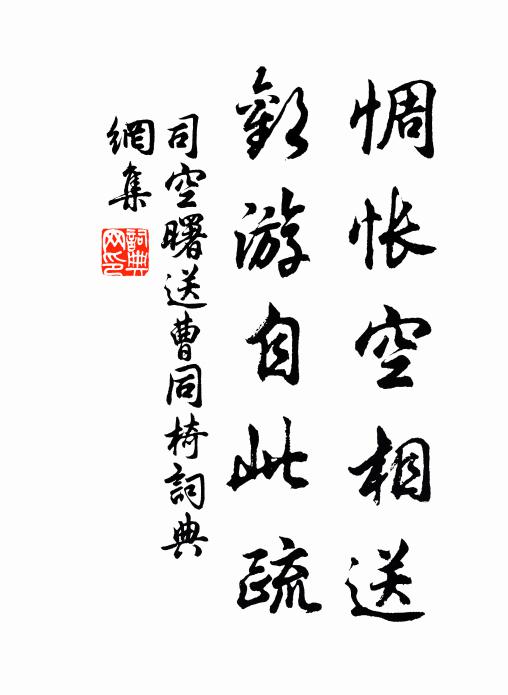 惆怅空相送
欢游自此疏
司空曙送曹同椅詞典
網集
詞典网印